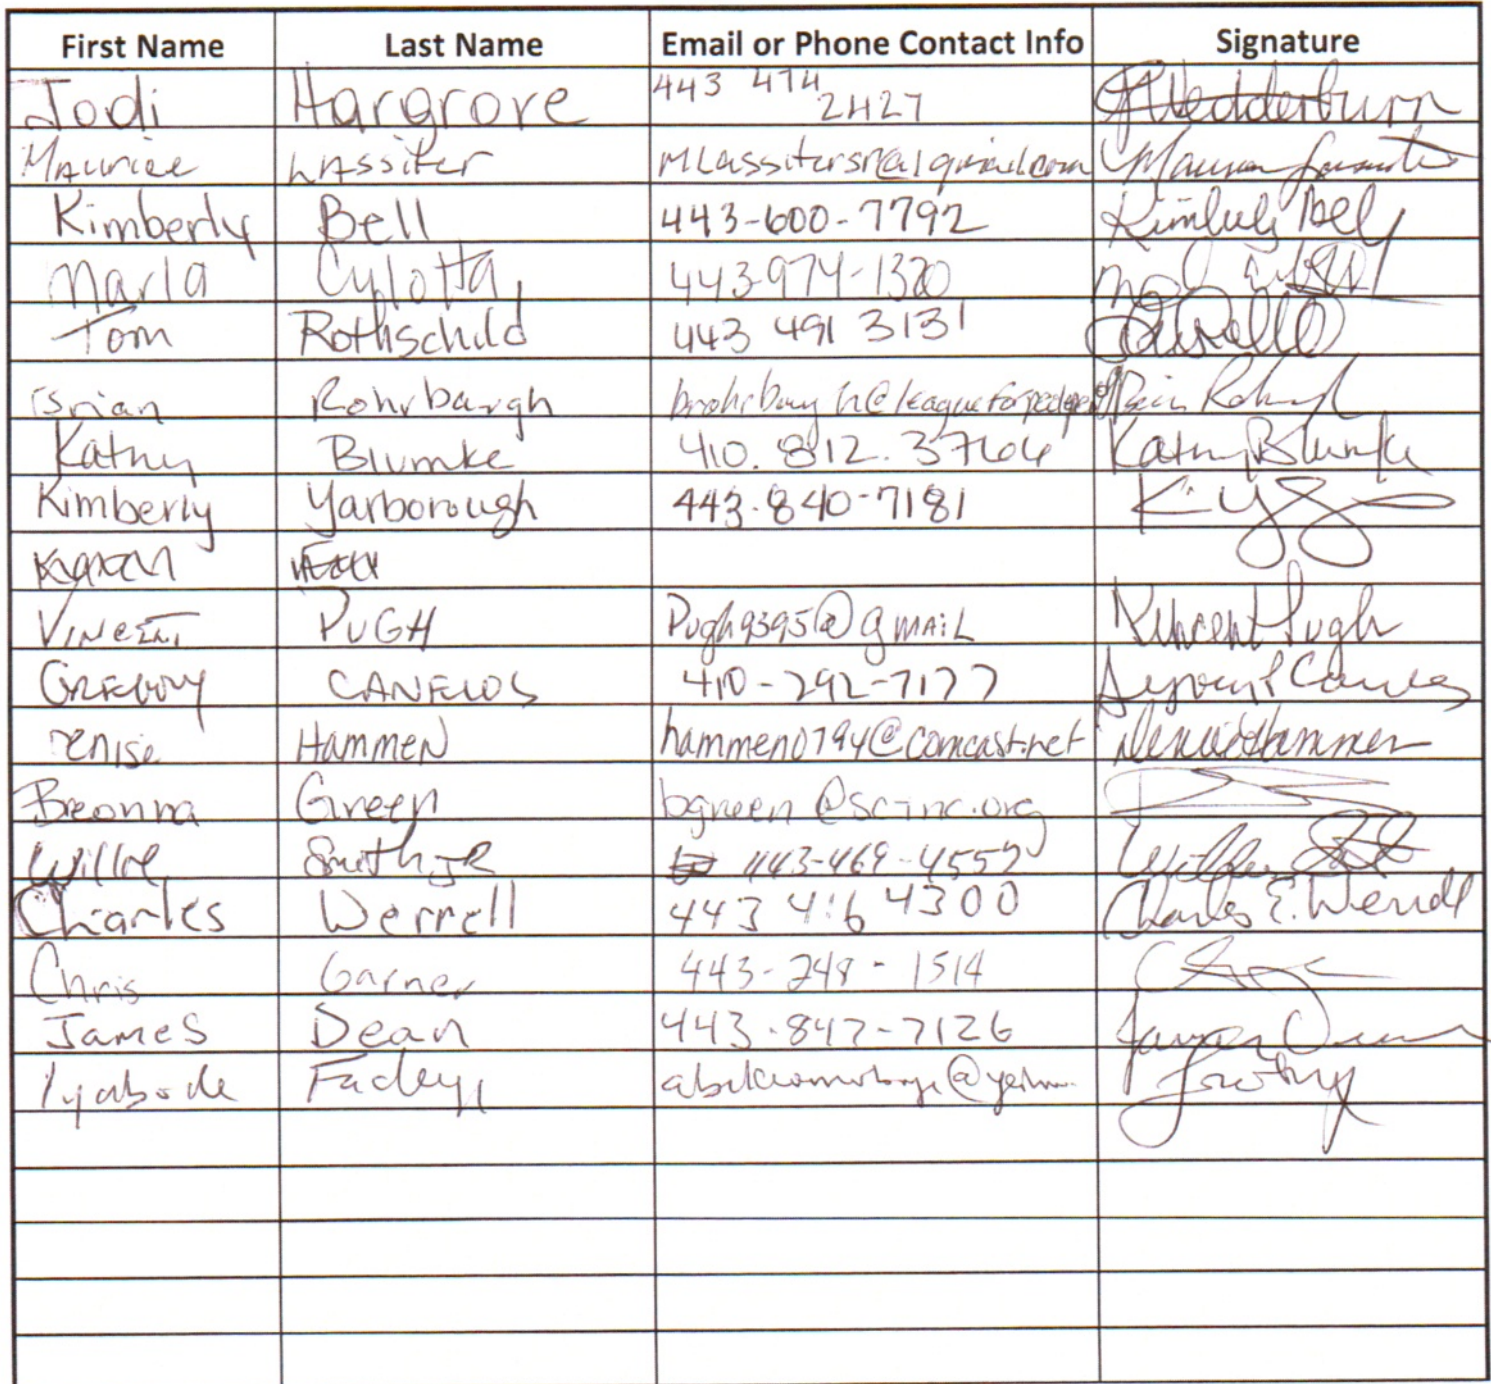 First Name Last Name Email or Phone Contact Info Signature
Jodi Hargrove 443 474 2427
Maurice Lassiter
Kimberly Bell 443-600-7792 Kimberly Bell
Marla 443-974-1320
Tom Rothschild 443 491 3131
Brian Rohrbaugh
Kathy Blumke 410. 812. 3764 Kathy Blumke
Kimberly Yarborough 443-840-7181
Karen
VINCENT PUGH Pugh9395@gMAIL Vincent Pugh
GREGORY CANELOS 410-292-7177
Denise HAMMEN hammen0794@comcast.net Denise Hammen
Breonna Green bgreen@scinc.org
Willie Smith JR 443-469-4557
Charles Werrell 443 416 4300 Charles E. Werrell
Chris Garner 443-248-1514
James Dean 443-847-7126 James Dean
Iyabode